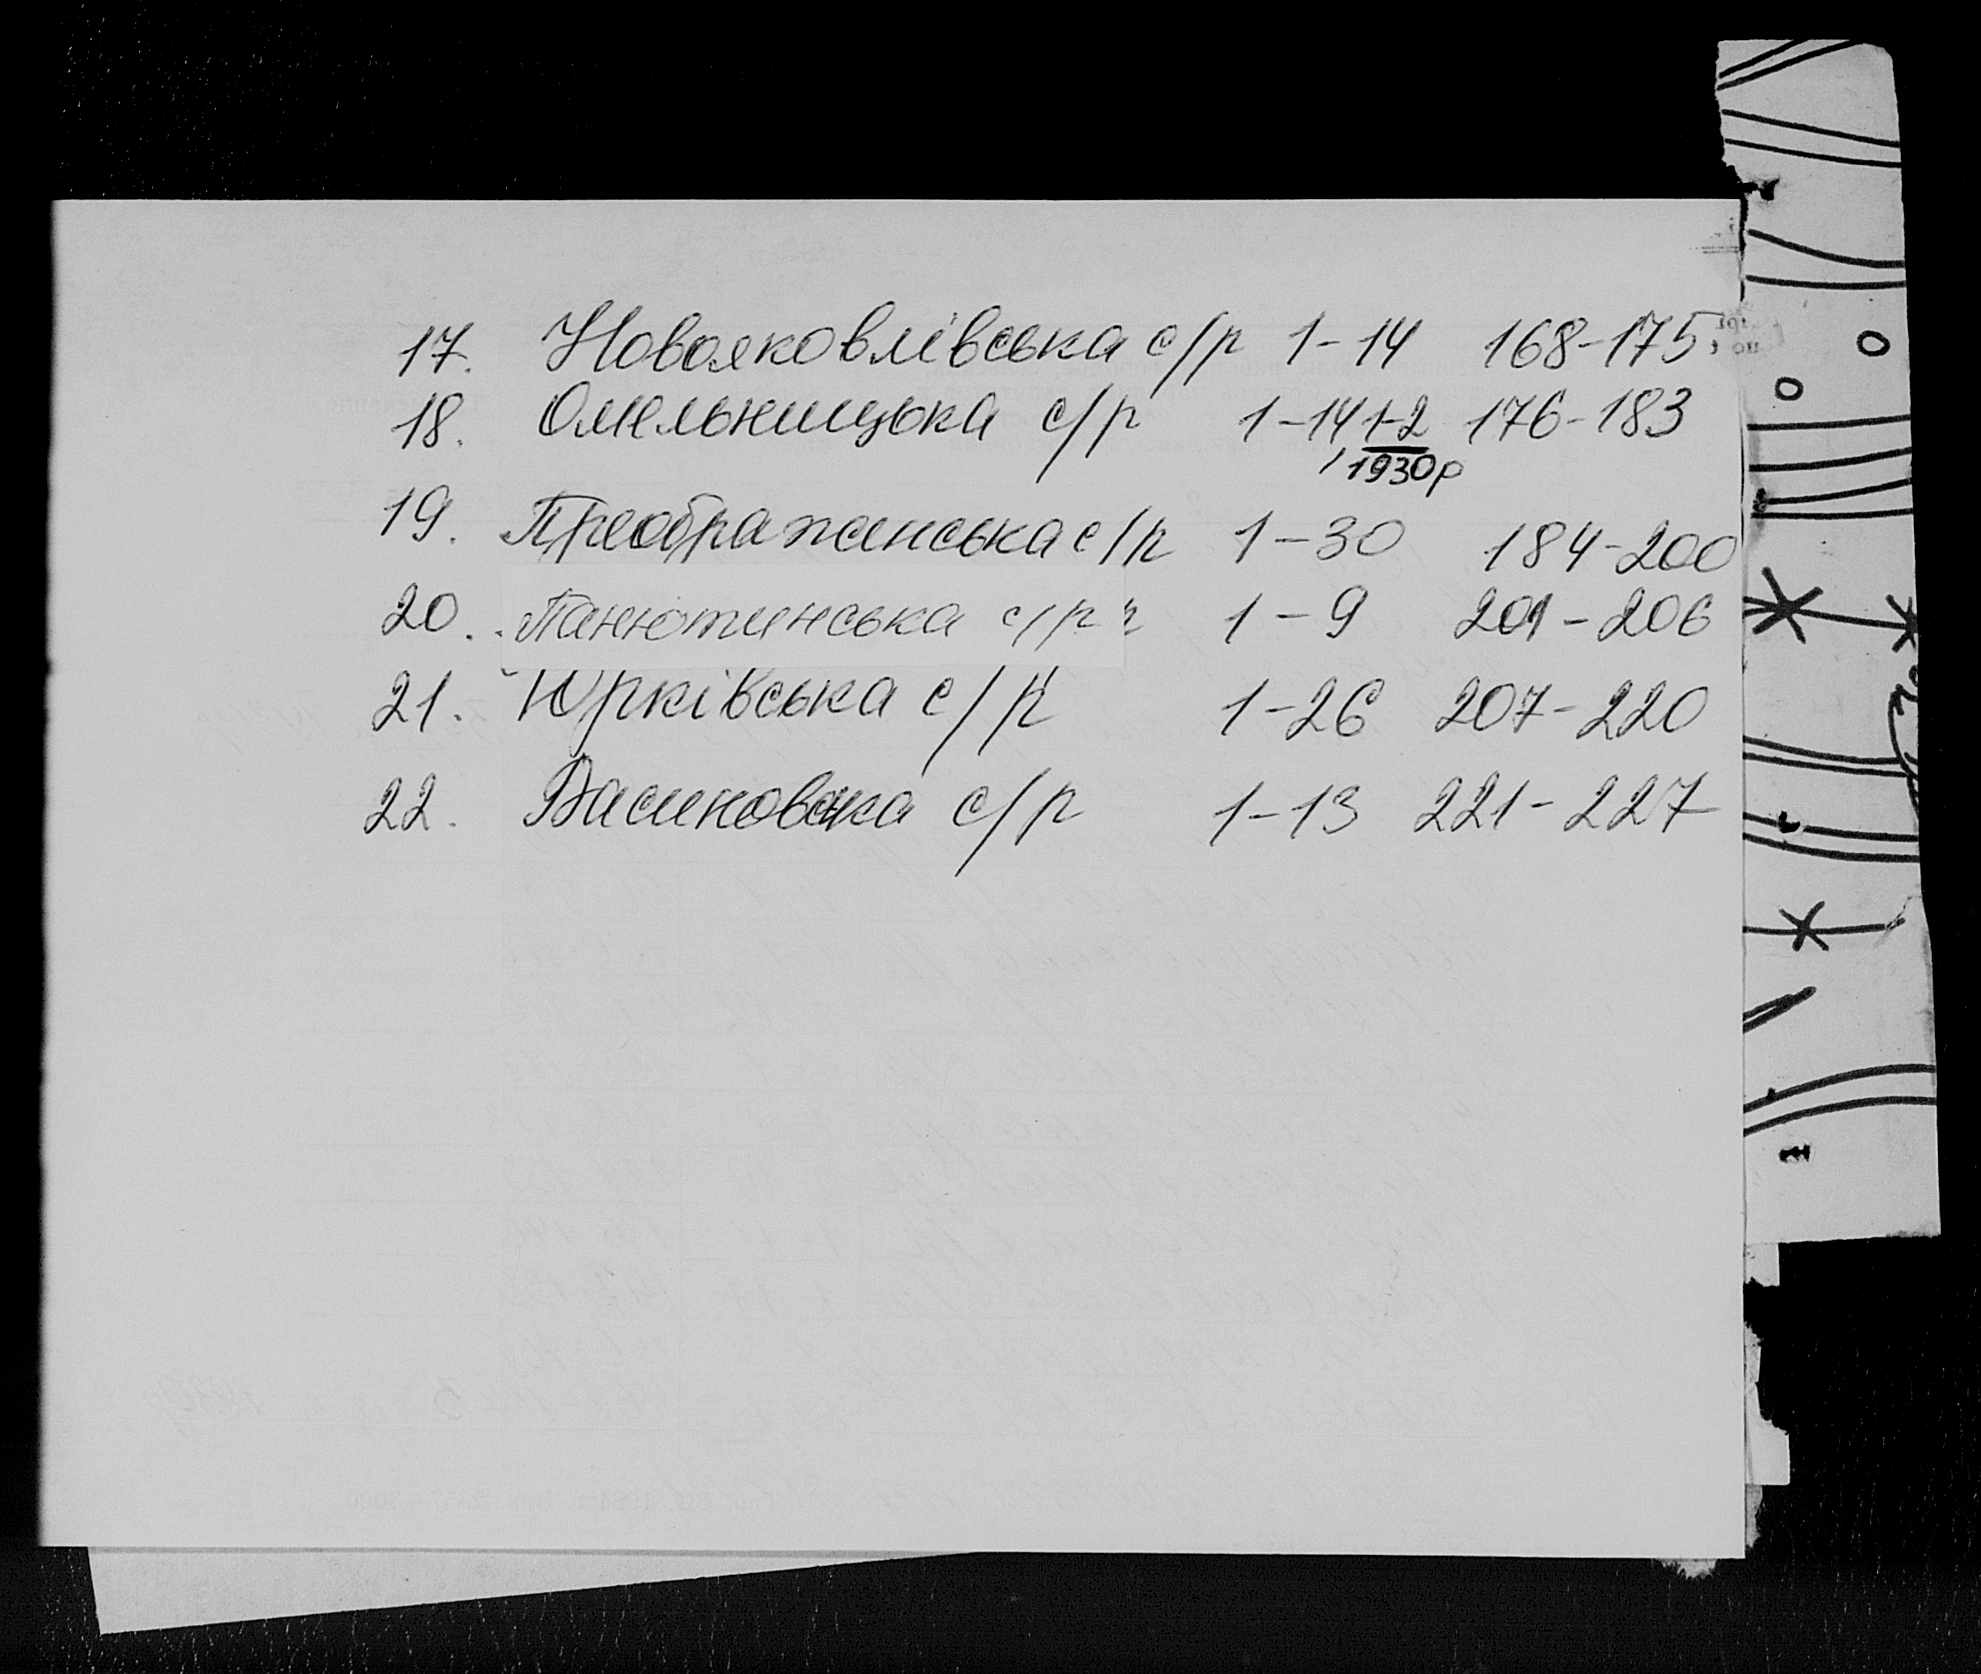 17. Новояковлівська с/р 1-14 168-175
18. Омельницька с/р 1-14 1-2 176-183
1930р
19. Преображенська с/р 1-30 184-200
20. Панютинська с/р 1-9 201-206
21. Юрківська с/р 1-26 207-220
22. Васиновська с/р 1-13 221-227